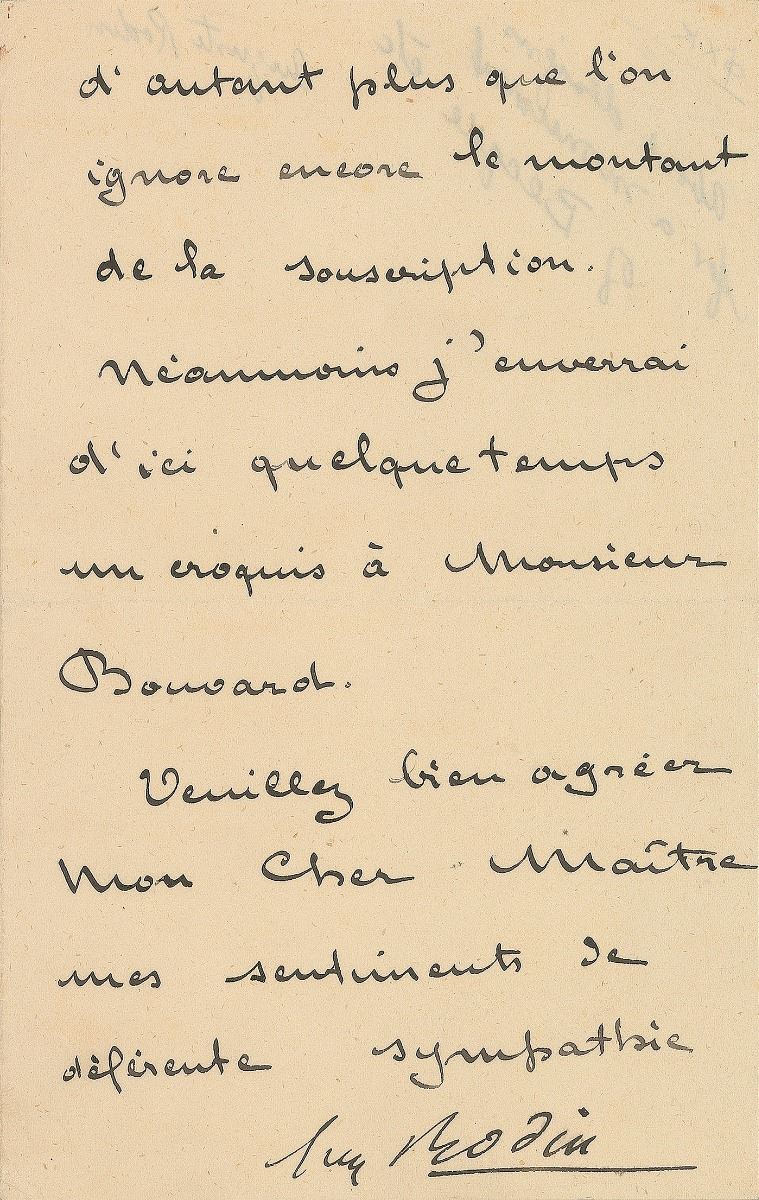 d'autant plus que l'on
ignore encore le montant
de la souscription.
Néanmoins j'enverrai
d'ici quelque temps
un croquis à Monsieur
Bouvard.
Veuillez bien agréer
Mon Cher Maître
mes sentiments de
déférente sympathie
Aug Rodin